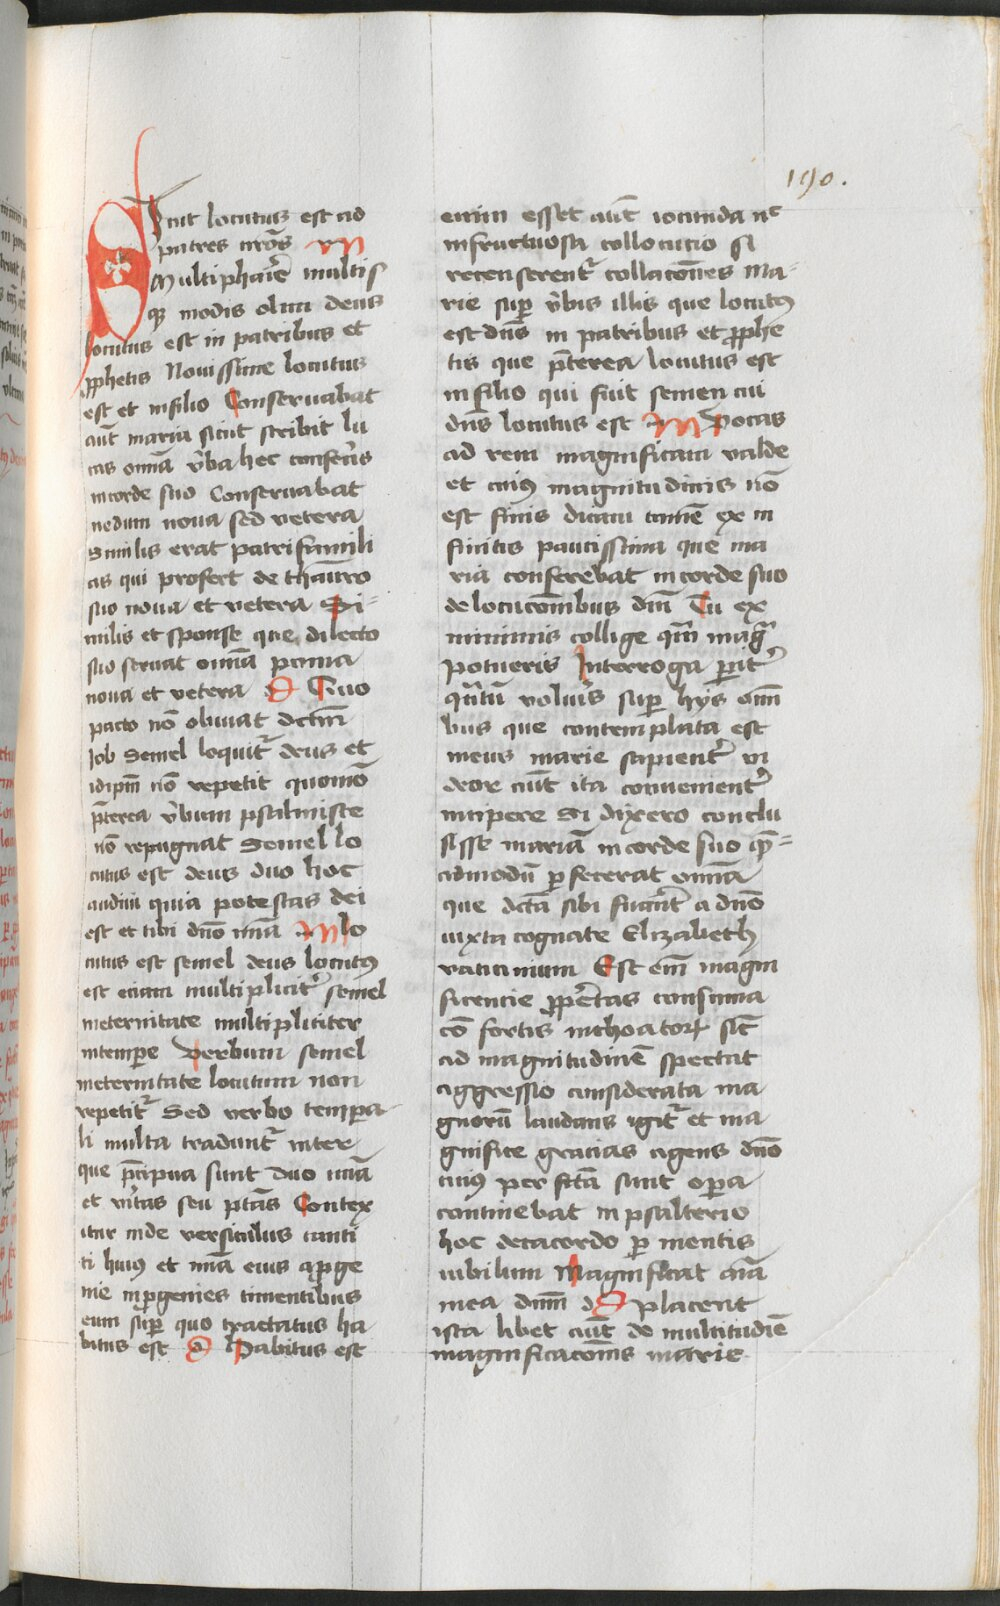 190.
Sicut locutus est ad
patres nr̄os M
Multipharie multis
qꝫ modis olim deus
locutus est in patribus et
ꝓphetis Nouissime locutus
est et in filio Conseruabat
aūt maria sicut scribit lu
cas om̄a v̄ba hec conferēs
in corde suo Conseruabat
nedum noua sed vetera
Similis erat patri famili
as qui profert de thauro
suo noua et vetera Si-
milis et sponse que dilecto
suo seruat om̄ia poma
noua et vetera D Quo
pacto nō obuiat dictū
Job Semel loquit̄ deus et
idip̄m nō repetit quomō
p̄terea v̄bum psalmiste
nō repugnat Semel lo
cutus est deus duo hec
audiui quia potestas dei
est et tibi dn̄o mīa M lo
cutus est semel deus locutꝰ
est eciam multiplicit̄ semel
in eternitate multipliciter
in tempore Verbum semel
in eternitate locutum non
repetit̄ Sed verbo tempora
li multa tradunt̄ inter
que p̄cipua sunt duo mīa
et v̄itas seu p̄tās Contex
itur inde versiculus canti
ci huiꝰ et mīa eius a ꝓge
nie in ꝓgenies timentibus
eum sup̄ quo tractatus ha
bitus est D Habitus est
enim esset aūt iocunda nᶜ
infructuosa collocutio si
recenserent̄ collacōnes Ma-
rie sup̄ v̄bis illis que locutꝰ
est dn̄s in patribus et ꝓphe
tis que p̄terea locutus est
in filio qui fuit semen cui
dn̄s locutus est M Vocas
ad rem magnificam valde
et cuiꝰ magnitudinis nō
est finis dicam tamē ex in
finitis paucissima que ma
ria conferebat in corde suo
de locucōnibus dīni Tu ex
minimis collige qm̄ maḡ
potueris Interroga p̄it̄
q̄ntū volūis sup̄ hys om̄i
bus que contemplata est
mens marie sapient̄ vi
deor aūt ita conuenient̄
incipere Si dixero conclu
sisse mariā in corde suo qē-
admodū ꝑfecerat om̄ia
que dctā sibi fuer̄t a dn̄o
iuxta cognate Elizabeth
vaticinium Est em̄ magni
ficencie ꝓp̄etas consuma
cō fortis inchoatorꝝ sic̄
ad magnitudinē spectat
aggressio considerata ma
gnorū laudans igit̄ et ma
gnifice gracias agens dn̄o
cuiꝰ per fctā sunt oꝑa
continebat in psalterio
hoc decacordo ꝑ mentis
iubilum Magnificat aīa
mea dnm̄ D placent
ista libet aūt de multitudīe
magnificacōnis marie